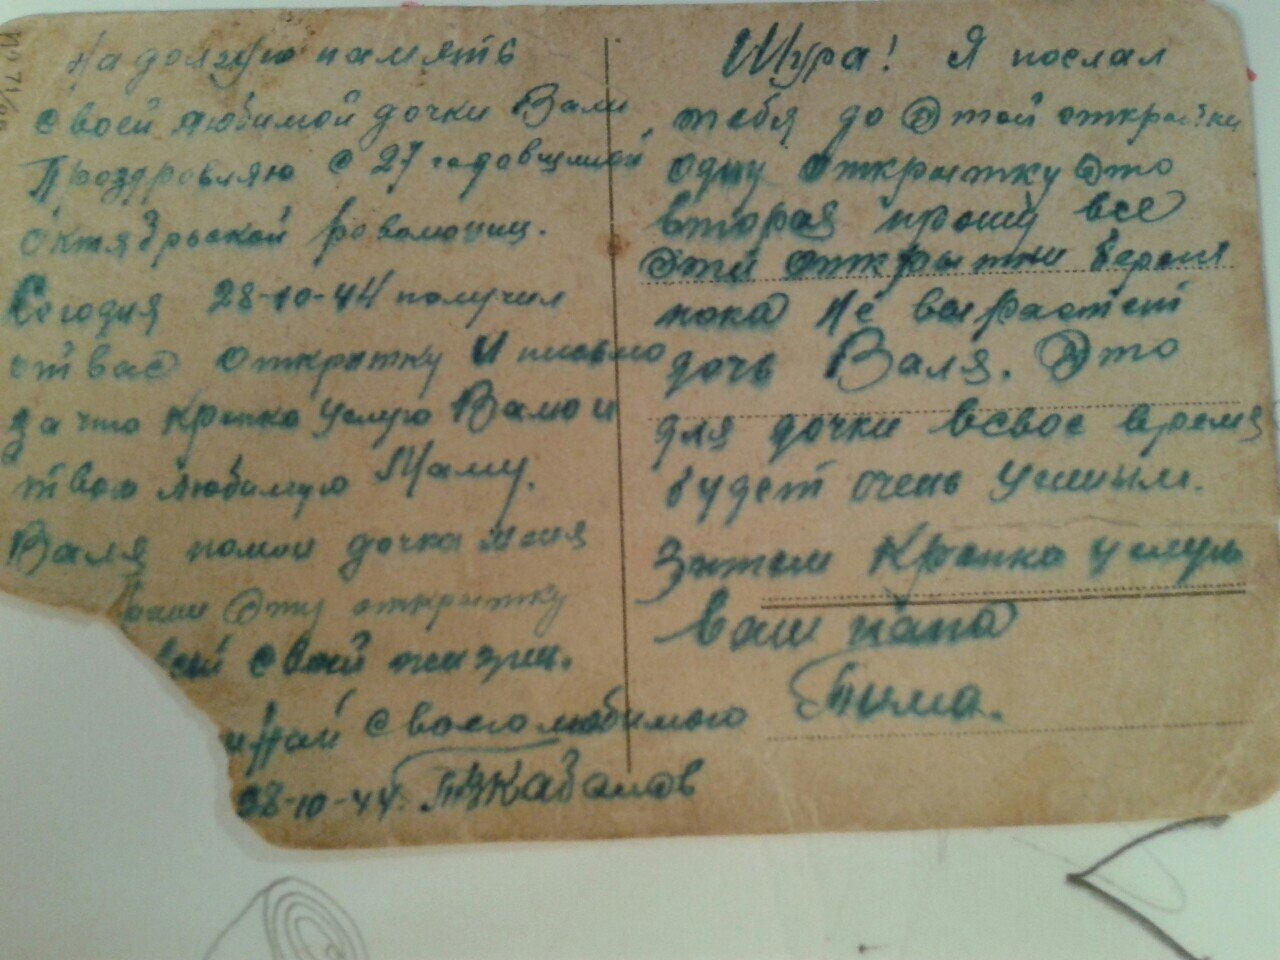 На долгую память
своей любимой дочки Вали
Проздровляю с 27 годовщиной
Октябрьской революции.
Сегодня 28-10-44 получил
от вас открытку и письмо
за что крепко целую Валю и
твою любимую Маму.
Валя помни дочка меня
эту открытку
всей своей жизни.
своего любимого
28-10-44. Кабанов
Шура! Я послал
тебя до этой открытки
одну открытку это
вторая прошу все
эти открытки береги
пока не вырастет
дочь Валя. Это
для дочки всвое время
будет очень ценным.
Затем крепко целую
ваш папа
Тима.